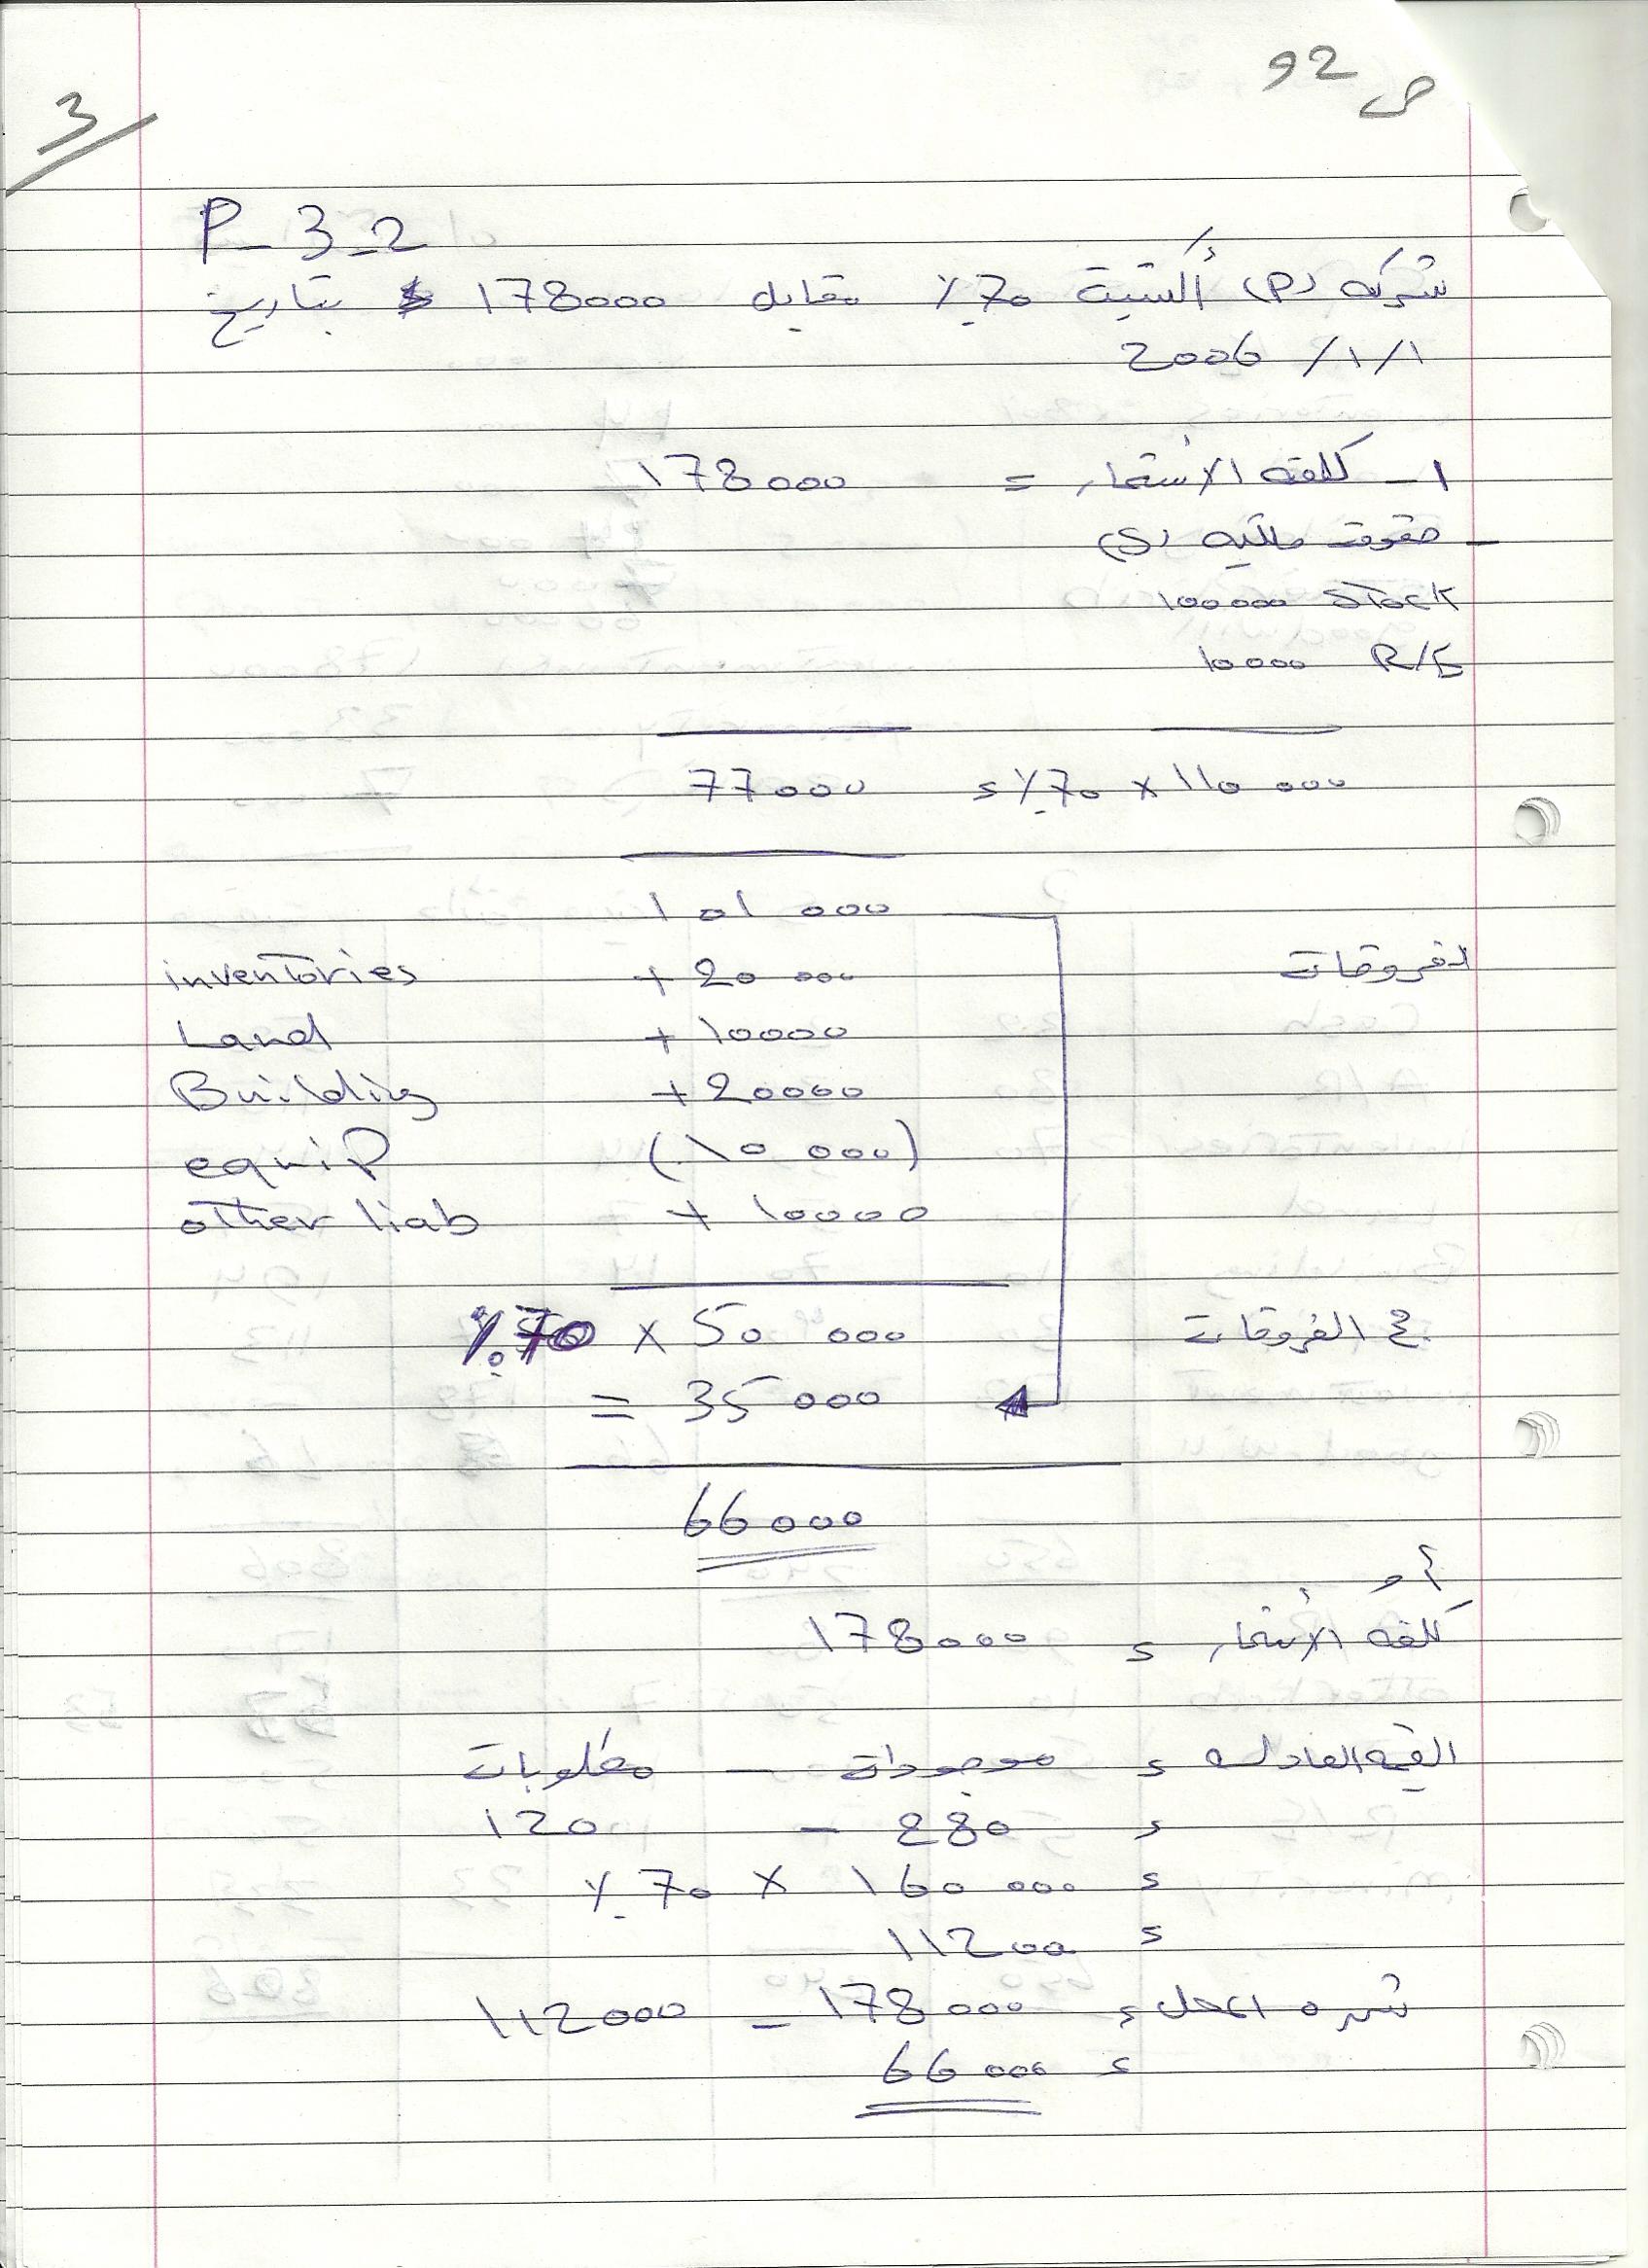 ص 92
3
P-3-2
شركه (P) أكتتبت 70٪ مقابل 178000 $ بتاريخ
1/1/2006
1- كلفه الأستثمار = 178000
- حقوق ملكيه (S)
100000 Stock
10000 R/E
110 000 × 70٪ = 77000
101 000
الفروقات
inventories + 20 000
Land + 10000
Building + 20000
equip (10 000)
other liab + 10000
مج الفروقات 50 000 × 70٪
= 35 000
66000
أو
كلفه الأستثمار = 178000
القيمه العادله = موجودات - مطلوبات
= 280 - 120
= 160 000 × 70٪
= 11200
شهره المحل = 178000 - 112000
= 66000